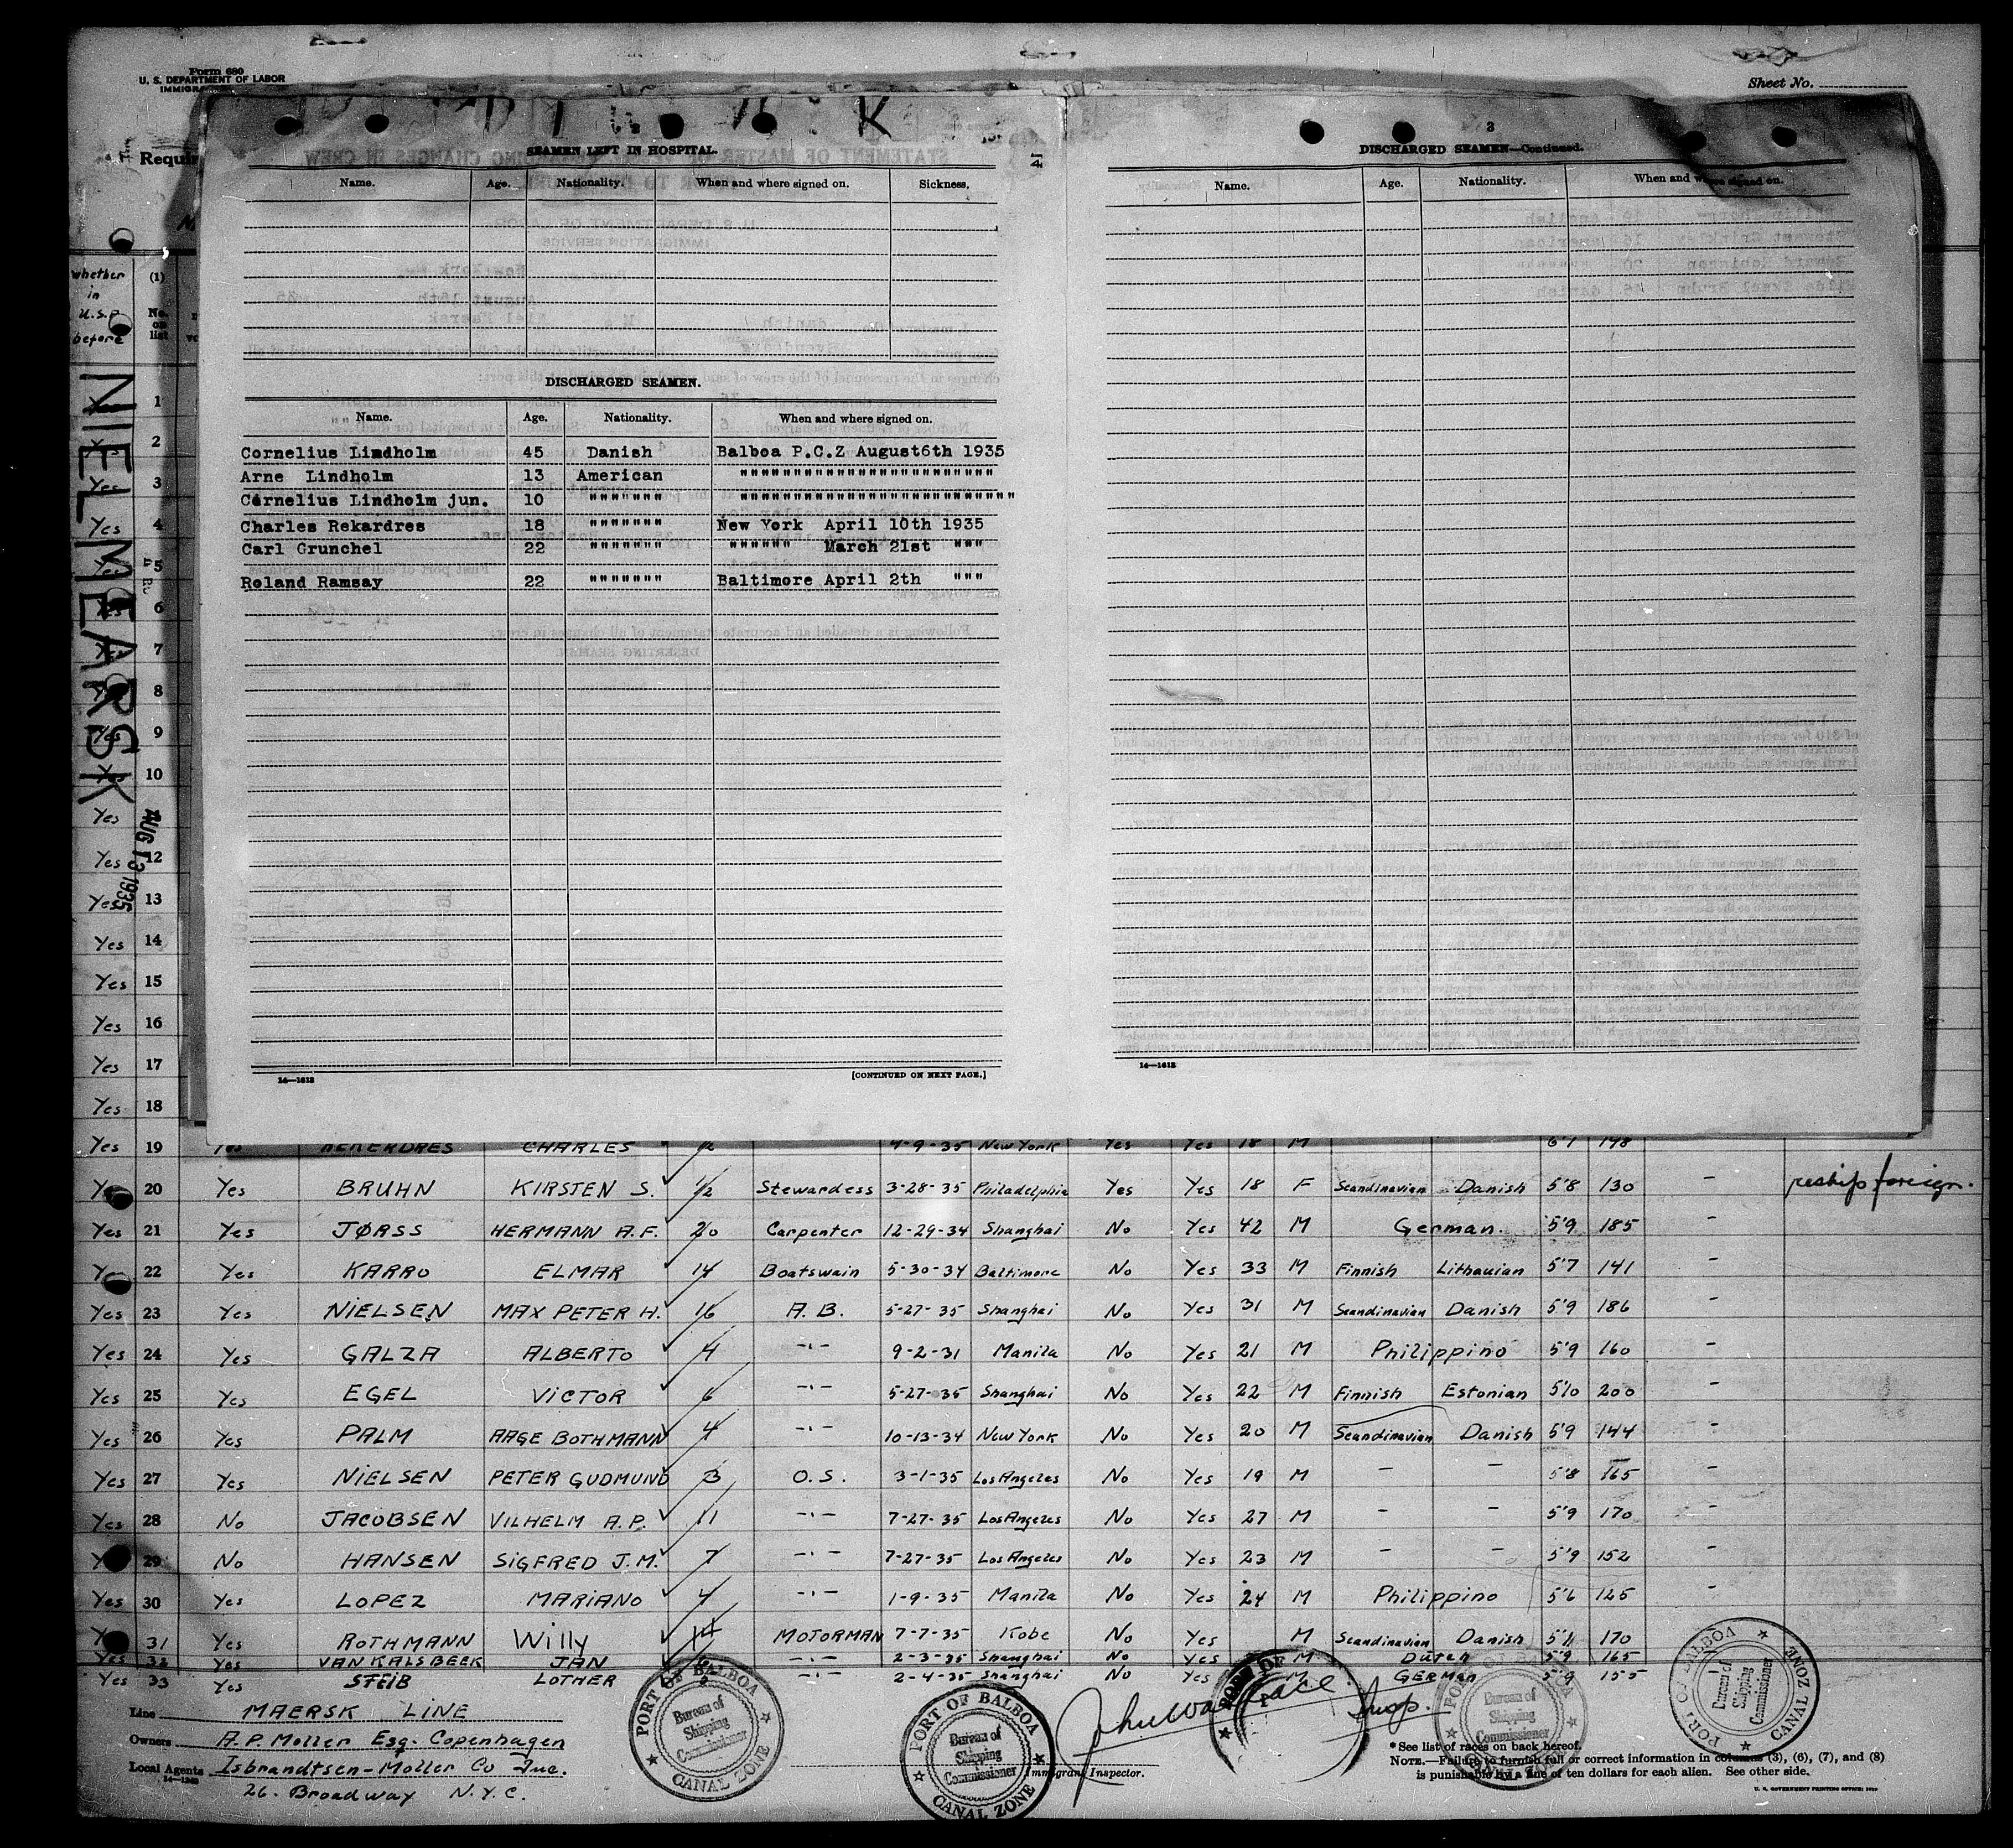 Form 680
U. S. DEPARTMENT OF LABOR
Sheet No.
NIEL MEARSK
AUG 13 1935
whether in U.S.A before
(1)
No. on list
2
SEAMEN LEFT IN HOSPITAL.
Name. Age. Nationality. When and where signed on. Sickness.
DISCHARGED SEAMEN.
Name. Age. Nationality. When and where signed on.
Cornelius Lindholm 45 Danish Balboa P.C.Z August6th 1935
Arne Lindholm 13 American """"""""""""""""""""""""
Cornelius Lindholm jun. 10 """"""" """"""""""""""""""""""""""
Charles Rekardres 18 """"""" New York April 10th 1935
Carl Grunchel 22 """"""" """""" March 21st """
Roland Ramsay 22 """"""" Baltimore April 2th """
14—1613
[CONTINUED ON NEXT PAGE.]
3
DISCHARGED SEAMEN—Continued.
Name. Age. Nationality. When and where signed on.
14—1613
1
2
Yes 3
Yes 4
Yes 5
Yes 6
Yes 7
Yes 8
Yes 9
Yes 10
Yes
Yes 12
Yes 13
Yes 14
Yes 15
Yes 16
Yes 17
Yes 18
Yes 19 Yes REKERDRES CHARLES 4-9-35 New York Yes Yes 18 M 6'1 148
20 Yes BRUHN KIRSTEN S. 1/2 Stewardess 3-28-35 Philadelphia Yes Yes 18 F Scandinavian Danish 5'8 130 - reship foreign.
Yes 21 Yes JØRSS HERMANN A.F. 20 Carpenter 12-29-34 Shanghai No Yes 42 M German. 5'9 185 -
22 Yes KARRO ELMAR 14 Boatswain 5-30-34 Baltimore No Yes 33 M Finnish Lithauian 5'7 141 -
Yes 23 Yes NIELSEN MAX PETER H. 16 A.B. 5-27-35 Shanghai No Yes 31 M Scandinavian Danish 5'9 186 -
Yes 24 Yes GALZA ALBERTO 4 -"- 9-2-31 Manila No Yes 21 M Philippino 5'9 160 -
Yes 25 Yes EGEL VICTOR 6 -"- 5-27-35 Shanghai No Yes 22 M Finnish Estonian 5'10 200 -
Yes 26 Yes PALM AAGE BOTHMANN 4 10-13-34 New York No Yes 20 M Scandinavian Danish 5'9 144 -
Yes 27 Yes NIELSEN PETER GUDMUND 3 O.S. 3-1-35 Los Angeles No Yes 19 M - - 5'8 165 -
Yes 28 No JACOBSEN VILHELM A.P. 11 -"- 7-27-35 Los Angeles No Yes 27 M - - 5'9 170 -
29 No HANSEN SIGFRED J.M. 7 -"- 7-27-35 Los Angeles No Yes 23 M - - 5'9 152 -
Yes 30 Yes LOPEZ MARIANO 4 -"- 1-9-35 Manila No Yes 24 M Philippino 5'6 125 -
31 Yes ROTHMANN Willy 14 MOTORMAN 7-7-35 Kobe No Yes M Scandinavian Danish 5'11 170
Yes 32 Yes VAN KALSBEEK JAN -"- 2-3-35 Shanghai No Yes M Dutch 5'9 165
Yes 33 Yes STEIB LOTHER -"- 2-4-35 Shanghai No Yes M GERMAN 5'9 155
Line MAERSK LINE
Owners A.P. Moller Esq. Copenhagen
Local Agents Isbrandtsen-Moller Co Inc.
14—1240
26. Broadway N.Y.C.
PORT OF BALBOA Bureau of Shipping Commissioner CANAL ZONE
PORT OF BALBOA Bureau of Shipping Commissioner CANAL ZONE
John Wallace Insp.
Immigrant Inspector.
PORT OF
Bureau of Shipping Commissioner
PORT OF BALBOA Bureau of Shipping Commissioner CANAL ZONE
*See list of races on back hereof.
NOTE.—Failure to furnish full or correct information in columns (3), (6), (7), and (8)
is punishable by a fine of ten dollars for each alien. See other side.
U. S. GOVERNMENT PRINTING OFFICE